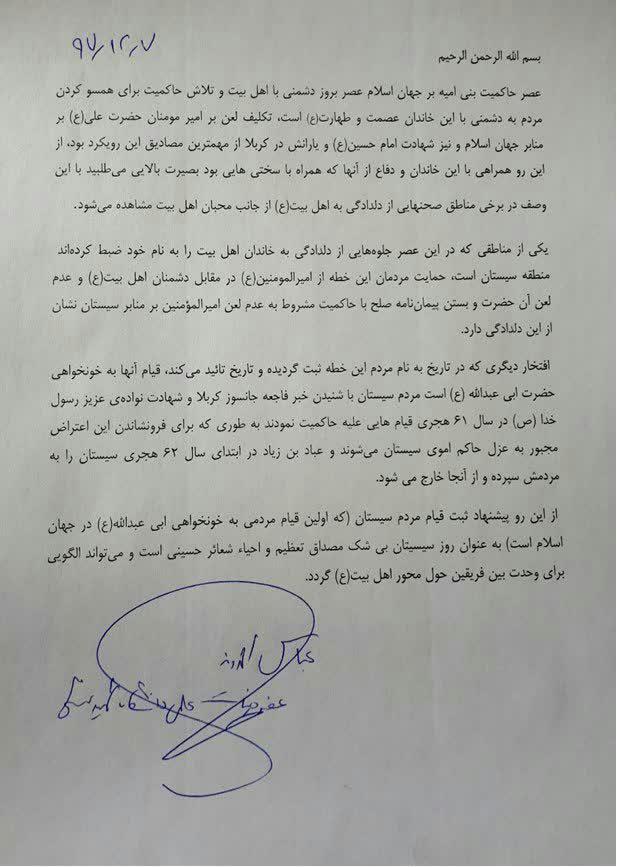 ۹۷/۱۲/۷
بسم الله الرحمن الرحیم
عصر حاکمیت بنی امیه بر جهان اسلام عصر بروز دشمنی با اهل بیت و تلاش حاکمیت برای همسو کردن
مردم به دشمنی با این خاندان عصمت و طهارت(ع) است، تکلیف لعن بر امیر مومنان حضرت علی(ع) بر
منابر جهان اسلام و نیز شهادت امام حسین(ع) و یارانش در کربلا از مهمترین مصادیق این رویکرد بود، از
این رو همراهی با این خاندان و دفاع از آنها که همراه با سختی هایی بود بصیرت بالایی می‌طلبید با این
وصف در برخی مناطق صحنهایی از دلدادگی به اهل بیت(ع) از جانب محبان اهل بیت مشاهده می‌شود.
یکی از مناطقی که در این عصر جلوه‌هایی از دلدادگی به خاندان اهل بیت را به نام خود ضبط کرده‌اند
منطقه سیستان است، حمایت مردمان این خطه از امیرالمومنین(ع) در مقابل دشمنان اهل بیت(ع) و عدم
لعن آن حضرت و بستن پیمان‌نامه صلح با حاکمیت مشروط به عدم لعن امیرالمؤمنین بر منابر سیستان نشان
از این دلدادگی دارد.
افتخار دیگری که در تاریخ به نام مردم این خطه ثبت گردیده و تاریخ تائید می‌کند، قیام آنها به خونخواهی
حضرت ابی عبدالله (ع) است مردم سیستان با شنیدن خبر فاجعه جانسوز کربلا و شهادت نواده‌ی عزیز رسول
خدا (ص) در سال ۶۱ هجری قیام هایی علبه حاکمیت نمودند به طوری که برای فرونشاندن این اعتراض
مجبور به عزل حاکم اموی سیستان می‌شوند و عباد بن زیاد در ابتدای سال ۶۲ هجری سیستان را به
مردمش سپرده و از آنجا خارج می شود.
از این رو پیشنهاد ثبت قیام مردم سیستان (که اولین قیام مردمی به خونخواهی ابی عبدالله(ع) در جهان
اسلام است) به عنوان روز سیسیتان بی شک مصداق تعظیم و احیاء شعائر حسینی است و می‌تواند الگویی
برای وحدت بین فریقین حول محور اهل بیت(ع) گردد.
عباس
عضو هیئت علمی دانشگاه